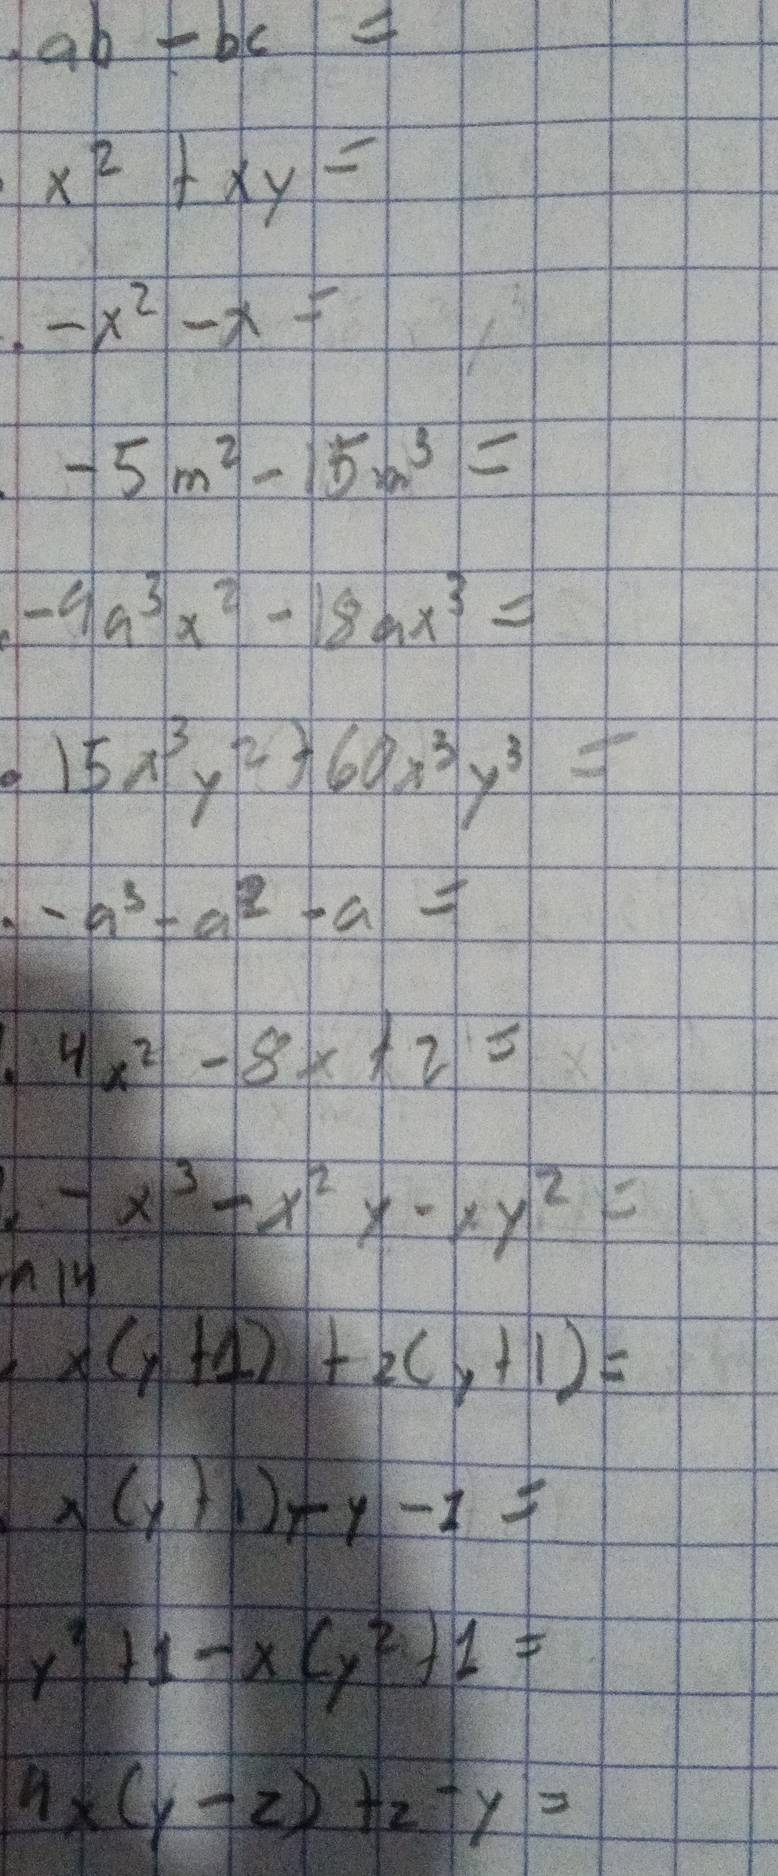 . ab - bc =
. x² + xy =
. -x² - x =
. -5m² - 15m³ =
. -9a³x² - 18ax³ =
. 15x³y² + 60x³y³ =
. -a³ - a² - a =
. 4x² - 8x + 2 =
. -x³ - x²y - xy² =
14
. x(y+1) + z(y+1) =
. x(y+1) - y - 1 =
y² + 1 - x(y² + 1 =
4x(y - z) + z - y =